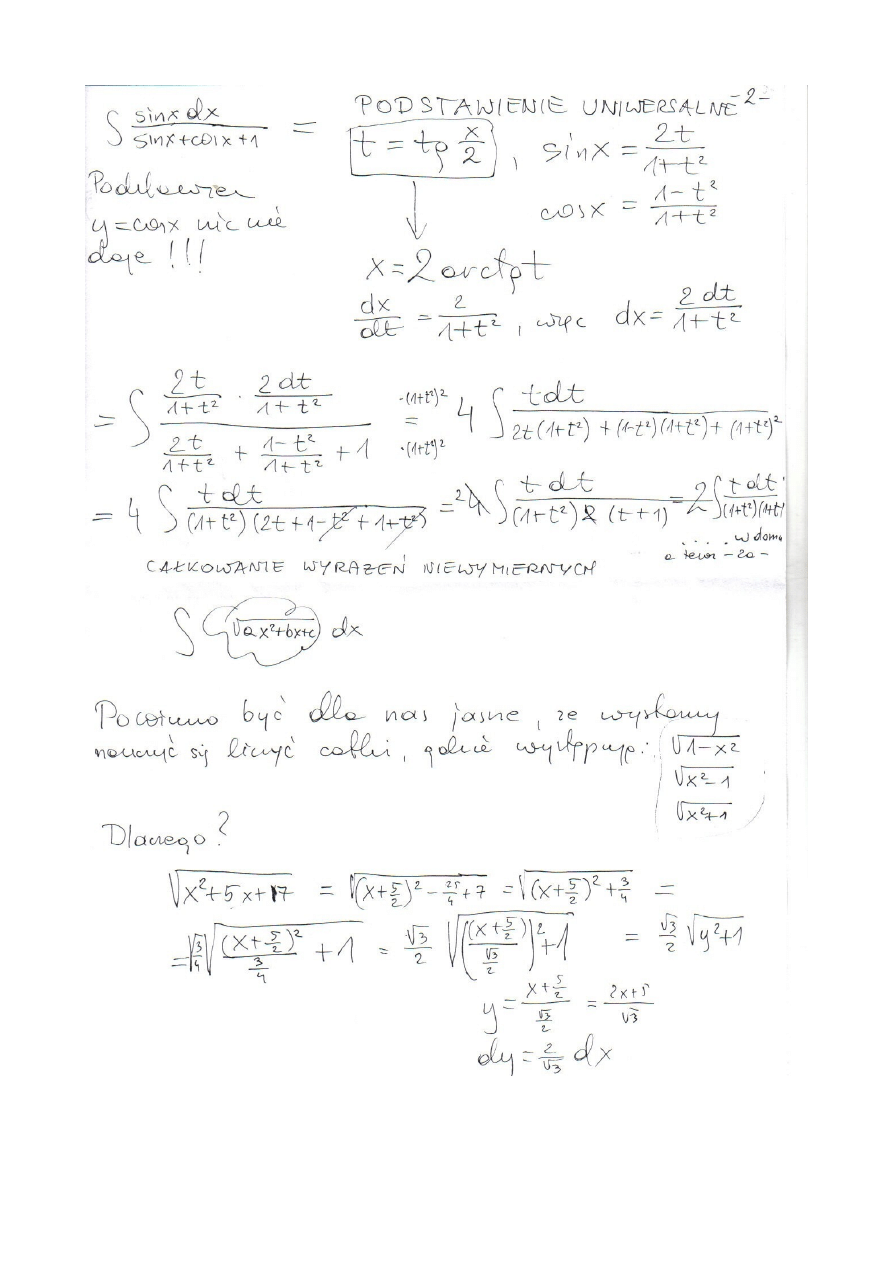 PODSTAWIENIE UNIWERSALNE -2-
∫ sinx dx / (sinx+cosx+1) = t = tg x/2 , sinx = 2t/(1+t²)
cosx = (1-t²)/(1+t²)
y=cosx nic nie
daje !!!
x=2 arctgt
dx/dt = 2/(1+t²) , więc dx= 2 dt/(1+t²)
= ∫ (2t/(1+t²) · 2dt/(1+t²)) / (2t/(1+t²) + (1-t²)/(1+t²) + 1) ·(1+t²)² = ·(1+t²)² 4 ∫ tdt / (2t(1+t²) + (1-t²)(1+t²) + (1+t²)²)
= 4 ∫ tdt / ((1+t²)(2t+1-t²+1+t²)) = 2 4 ∫ tdt / ((1+t²) 2 (t+1)) = 2 ∫ tdt / ((1+t²)(1+t
.... w domu
a teraz -2a-
CAŁKOWANIE WYRAŻEŃ NIEWYMIERNYCH
∫ (√(ax²+bx+c)) dx
Powinno być dla nas jasne, że wystarczy
nauczyć się liczyć całki, gdzie występuje: √(1-x²)
√(x²-1)
√(x²+1)
Dlaczego?
√(x²+5x+7) = √((x+5/2)² - 25/4 +7) = √((x+5/2)² + 3/4) =
= √(3/4) √((x+5/2)²/(3/4) + 1) = √3/2 √(((x+5/2)/(√3/2))² + 1) = √3/2 √(y²+1)
y = (x+5/2)/(√3/2) = (2x+5)/√3
dy = 2/√3 dx